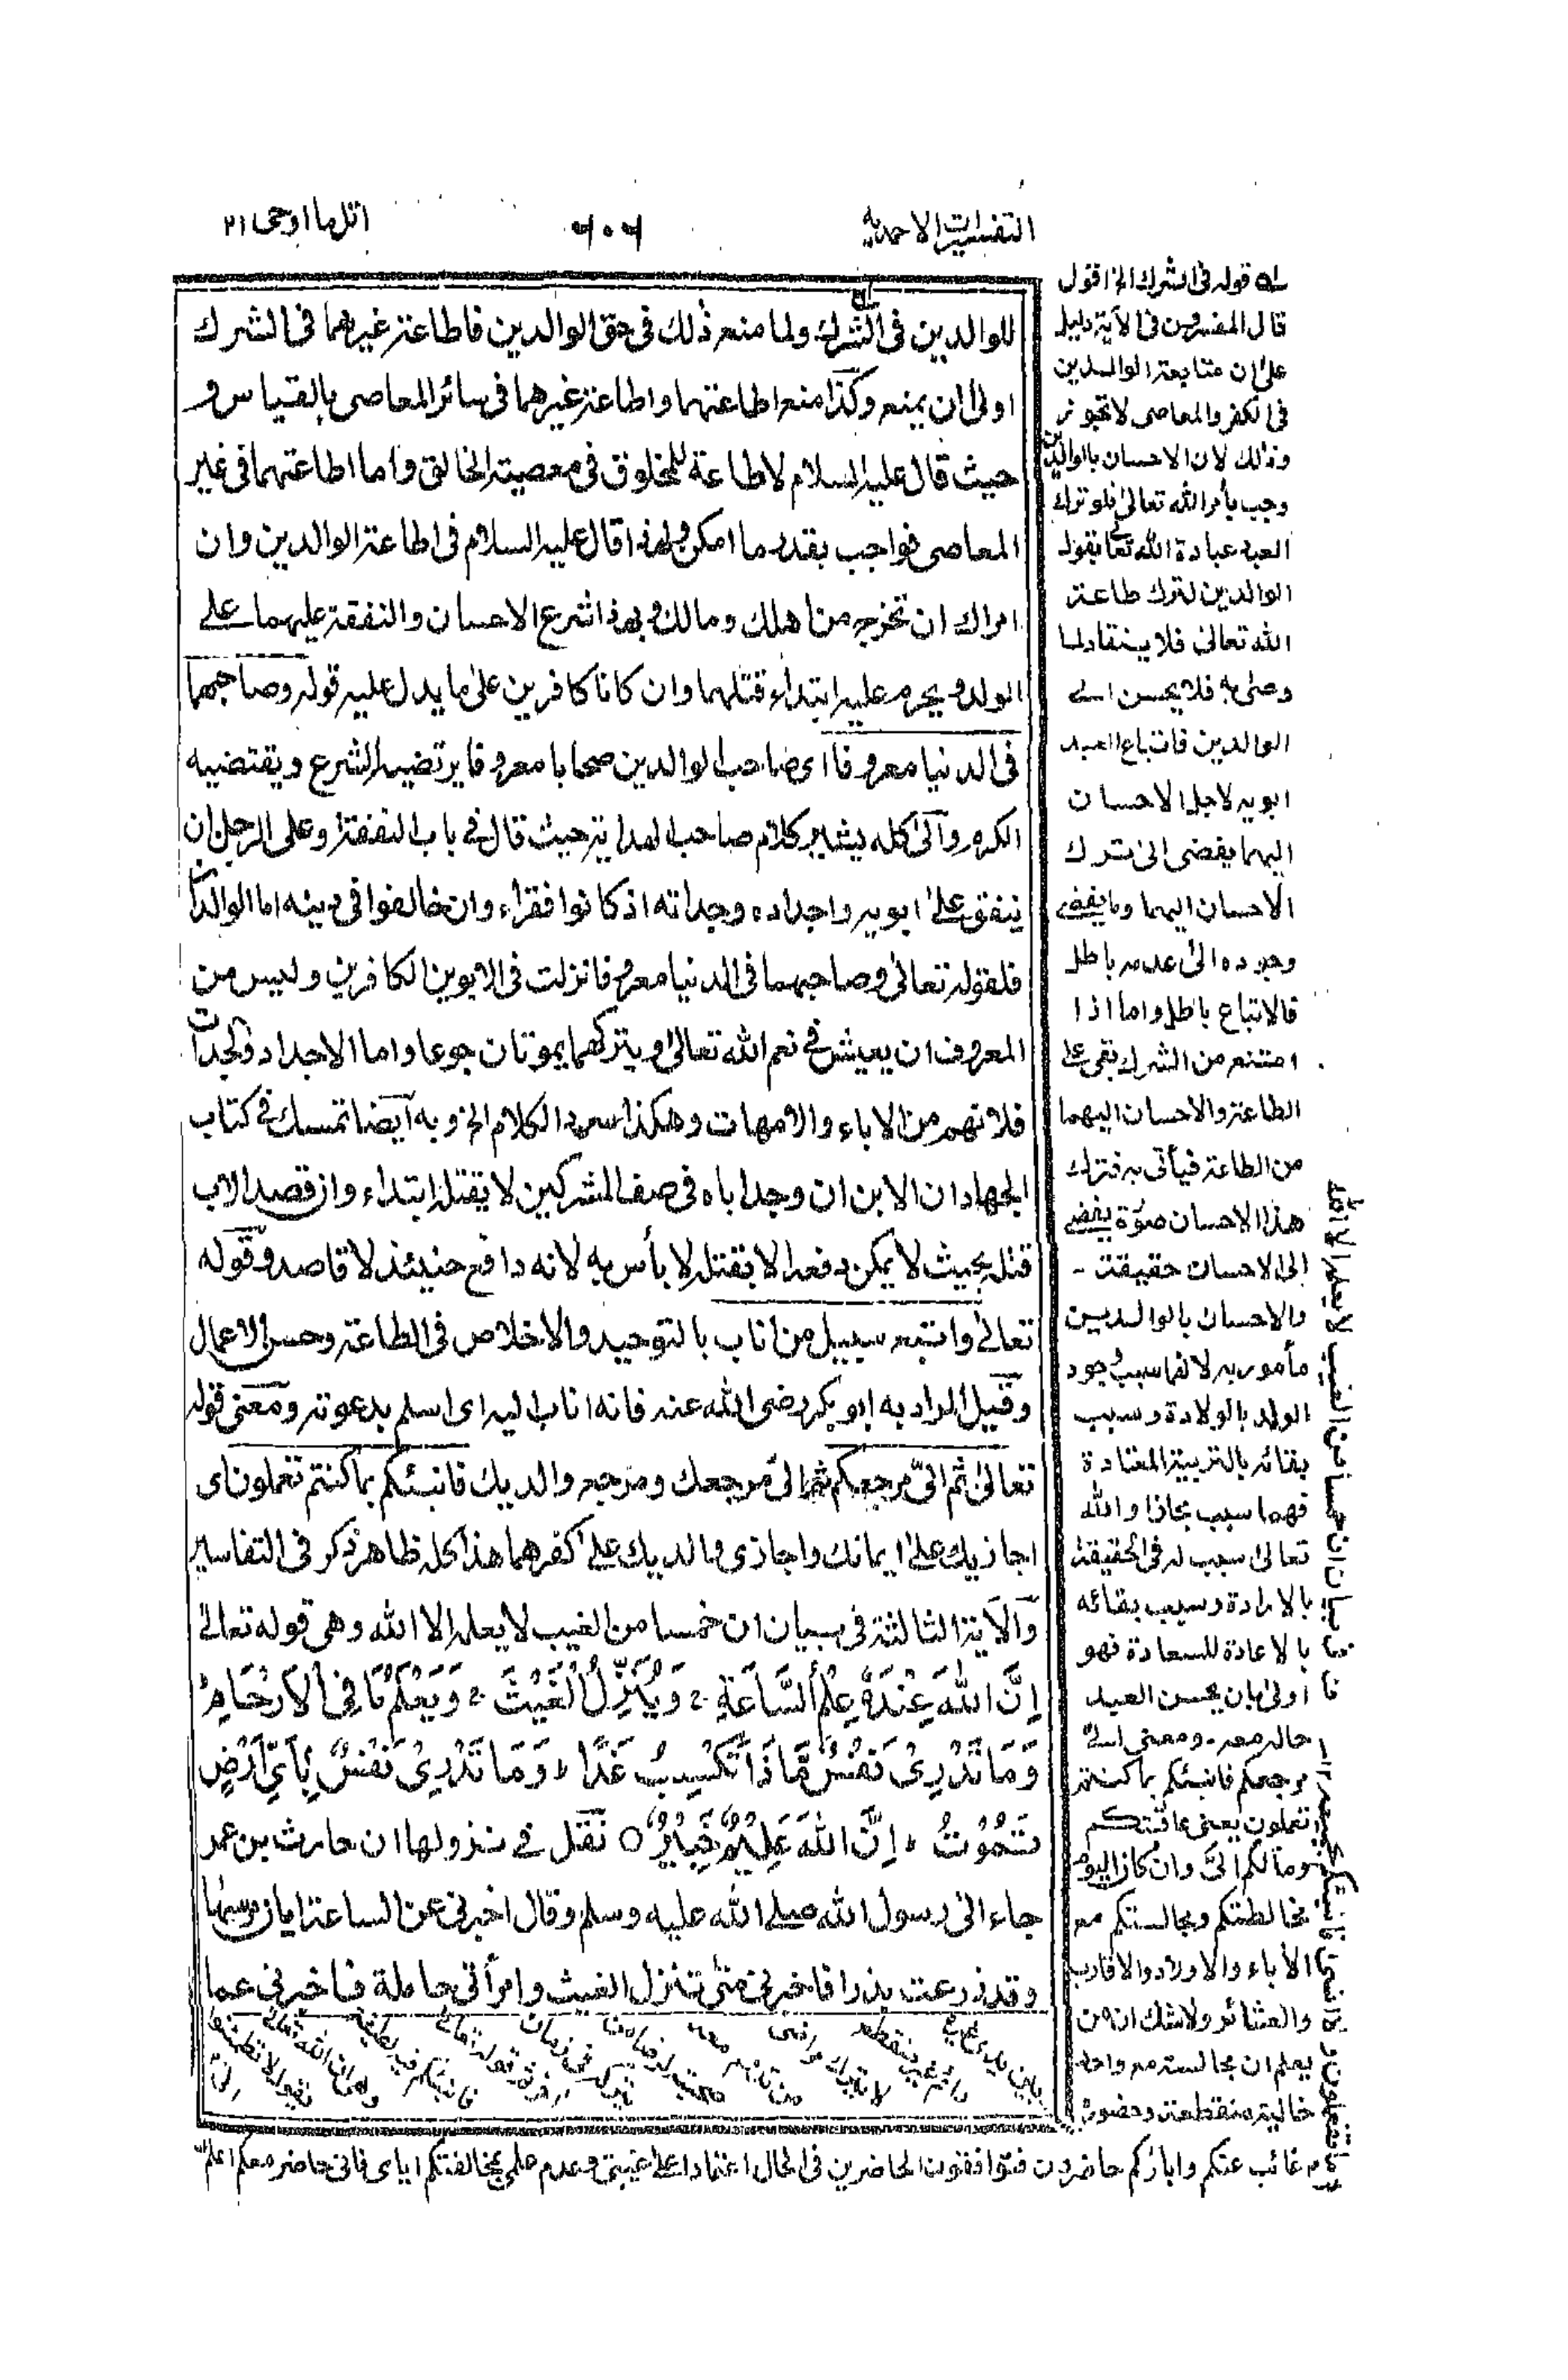 التفسيرات الاحمدية
٦٠٦
اتل ما اوحى ٢١
للوالدين فى الشرك ولما منع ذلك فى حق الوالدين فاطاعة غيرهما فى الشرك
اولى ان يمنع وكذا منع اطاعتهما واطاعة غيرهما فى سائر المعاصى بالقياس و
حيث قال عليه السلام لا طاعة للمخلوق فى معصية الخالق واما اطاعتهما فى غير
المعاصى فواجب بقدر ما امكن ولهذا قال عليه السلام فى اطاعة الوالدين وان
امراك ان تخرج من اهلك ومالك وبهذا شرع الاحسان والنفقة عليهما على
الولد ويحرم عليه ابتداء قتلهما وان كانا كافرين على ما يدل عليه قوله وصاحبهما
فى الدنيا معروفا اى صاحب الوالدين صحابا معروفا يرتضيه الشرع ويقتضيه
الكرم والى كله يشير كلام صاحب الهداية حيث قال فى باب النفقة وعلى الرجل ان
ينفق على ابويه واجداده وجداته اذ كانوا فقراء وان خالفوا فى دينه اما الوالدان
فلقوله تعالى وصاحبهما فى الدنيا معروفا نزلت فى الابوين الكافرين وليس من
المعروف ان يعيش فى نعم الله تعالى ويتركهما يموتان جوعا واما الاجداد والجدات
فلانهم من الاباء والامهات وهكذا سرد الكلام الخ وبه ايضا تمسك فى كتاب
الجهاد ان الابن ان وجد اباه فى صف المشركين لا يقتله ابتداء وان قصد الاب
قتله بحيث لا يمكن دفعه الا بقتله لا بأس به لانه دافع حنيئذ لا قاصد وقوله
تعالى واتبع سبيل من اناب بالتوحيد والاخلاص فى الطاعة وحسن الاعمال
وقيل المراد به ابو بكر رضى الله عنه فانه اناب اليه اى اسلم بدعوته ومعنى قوله
تعالى ثم الىّ مرجعكم ثم الى مرجعك ومرجع والديك فانبئكم بما كنتم تعملون اى
اجازيك على ايمانك واجازى والديك على كفرهما هذا كله ظاهر ذكر فى التفاسير
والآية الثالثة فى بيان ان خمسا من الغيب لا يعلمه الا الله وهى قوله تعالى
اِنَّ اللّٰهَ عِنْدَهٗ عِلْمُ السَّاعَةِ ۚ وَيُنَزِّلُ الْغَيْثَ ۚ وَيَعْلَمُ مَا فِى الْاَرْحَامِ ؕ
وَمَا تَدْرِىْ نَفْسٌ مَّاذَا تَكْسِبُ غَدًا ؕ وَمَا تَدْرِىْ نَفْسٌۢ بِاَىِّ اَرْضٍ
تَمُوْتُ ؕ اِنَّ اللّٰهَ عَلِيْمٌ خَبِيْرٌ ○ نقل فى نزولها ان حارث بن عمر
جاء الى رسول الله صلى الله عليه وسلم وقال اخبرنى عن الساعة ايان مرسىها
وقد زرعت بذرا فاخبرنى متى تنزل الغيث وامرأتى حاملة فاخبرنى عما
له قوله فى الشرك الخ اقول
قال المفسرون فى الاية دليل
على ان متابعة الوالدين
فى الكفر والمعاصى لا تجوز
وذلك لان الاحسان بالوالدين
وجب بأمر الله تعالى فلو ترك
العبد عبادة الله تعالى بقول
الوالدين لترك طاعة
الله تعالى فلا ينقاد لما
وصى به فلا يحسن الى
الوالدين فاتباع العبد
ابويه لاجل الاحسان
اليهما يفضى الى ترك
الاحسان اليهما وما يفضى
وجوده الى عدمه باطل
فالاتباع باطل واما اذا
امتنع من الشرك بقى على
الطاعة والاحسان اليهما
من الطاعة فيأتى به فترك
هذا الاحسان صورة يفضى
الى الاحسان حقيقة -
والاحسان بالوالدين
مأمور به لانهما سبب وجود
الولد بالولادة وسبب
بقائه بالتربية المعتادة
فهما سبب مجازا والله
تعالى سبب له فى الحقيقة
بالارادة وسبب بقائه
بالاعادة للسعادة فهو
اولى بان يحسن العبد
حاله معه - ومعنى الى
مرجعكم فانبئكم بما كنتم
تعملون يعنى عاقبتكم
ومآلكم الىّ وان كان اليوم
مخالطتكم ومجالستكم مع
الأباء والاولاد والاقارب
والعشائر ولا شك ان من
يعلم ان مجالسته مع واحد
خالية منقطعة وحضوره
غائب عنكم واباؤكم حاضرون فتوافقون الحاضرين فى الحال اعتمادا على غيبتى وعدم علمى بمخالفتكم اياى فانى حاضر معكم اعلم
بيان ان خمسا من الغيب لا يعلمه الا الله